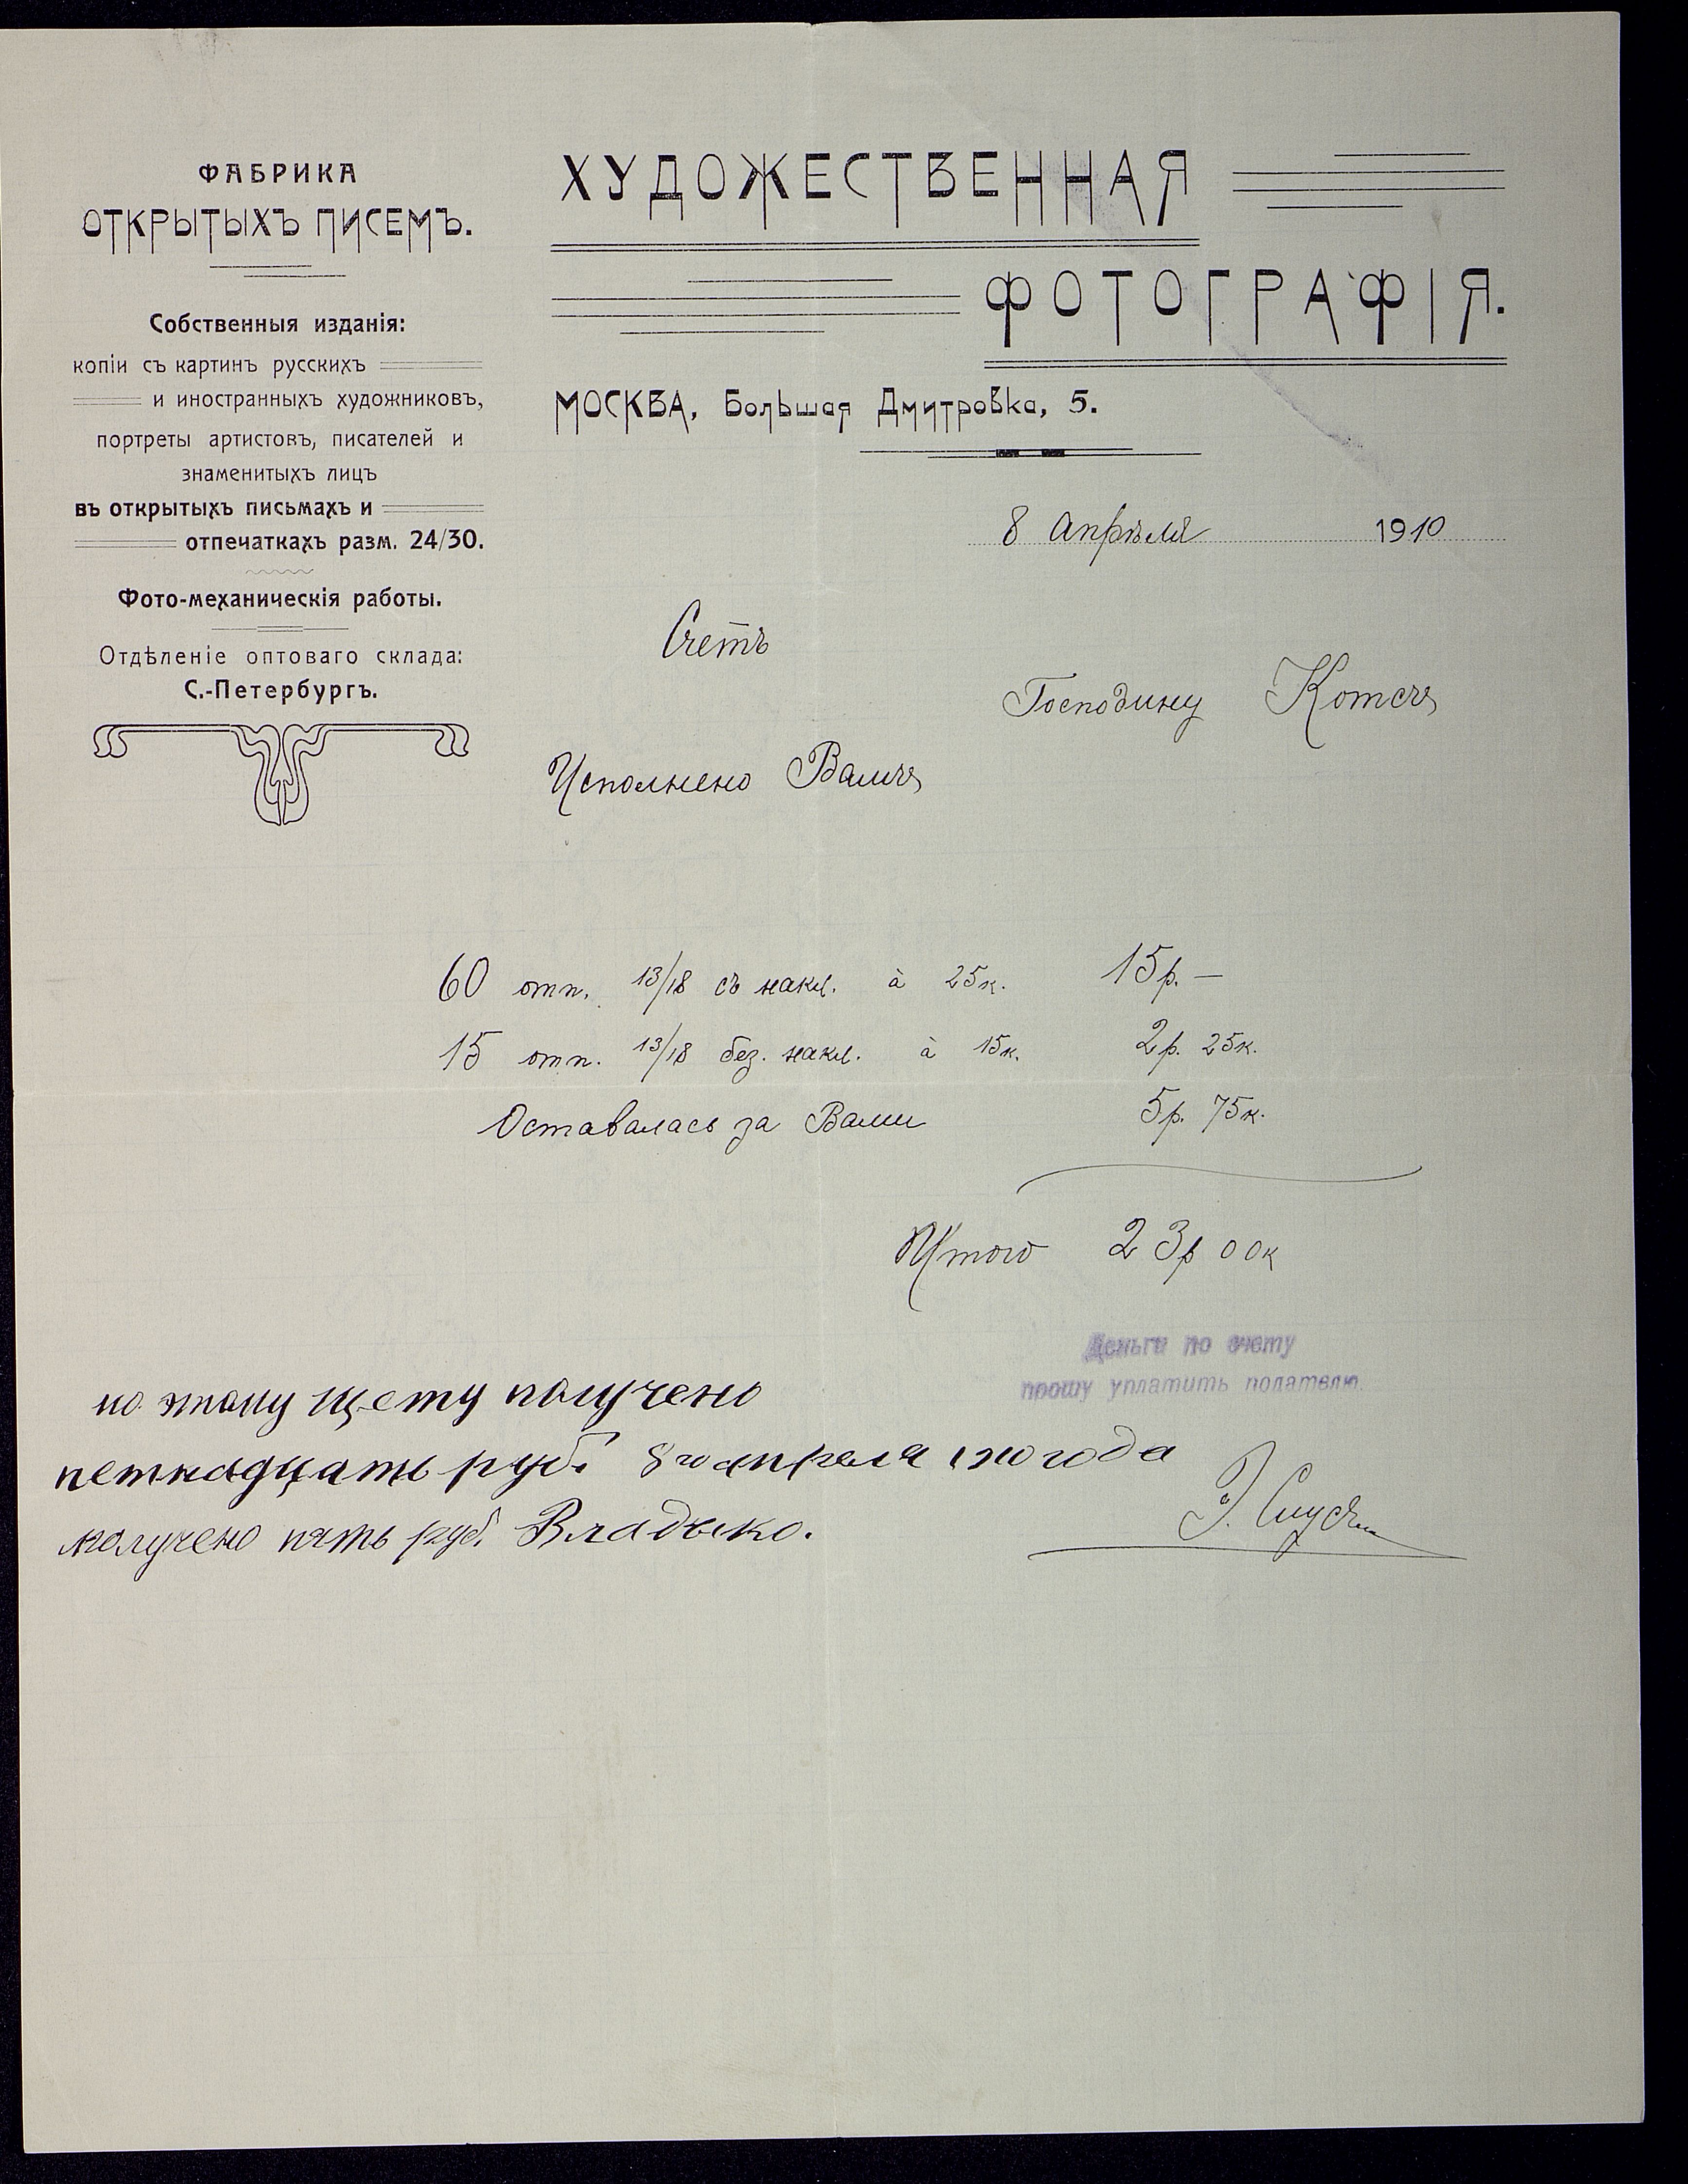 ФАБРИКА
ОТКРЫТЫХЪ ПИСЕМЪ.
Собственныя изданія:
копіи съ картинъ русскихъ
и иностранныхъ художниковъ,
портреты артистовъ, писателей и
знаменитыхъ лицъ
въ открытыхъ письмахъ и
отпечаткахъ разм. 24/30.
Фото-механическія работы.
Отдѣленіе оптоваго склада:
С.-Петербургъ.
ХУДОЖЕСТВЕННАЯ
ФОТОГРАФІЯ.
МОСКВА, Большая Дмитровка, 5.
8 Апрѣля 1910
Счетъ
Господину Котсъ
Исполнено Вамъ
60 отп. 13/18 съ накл. à 25к. 15р. —
15 отп. 13/18 без. накл. à 15к. 2р. 25к.
Оставалась за Вами 5р. 75к.
Итого 23р 00к
Деньги по счету
прошу уплатить подателю
по этому щету получено
петнадцать руб. 8го апреля 1910 года
получено пять руб. Владыко.